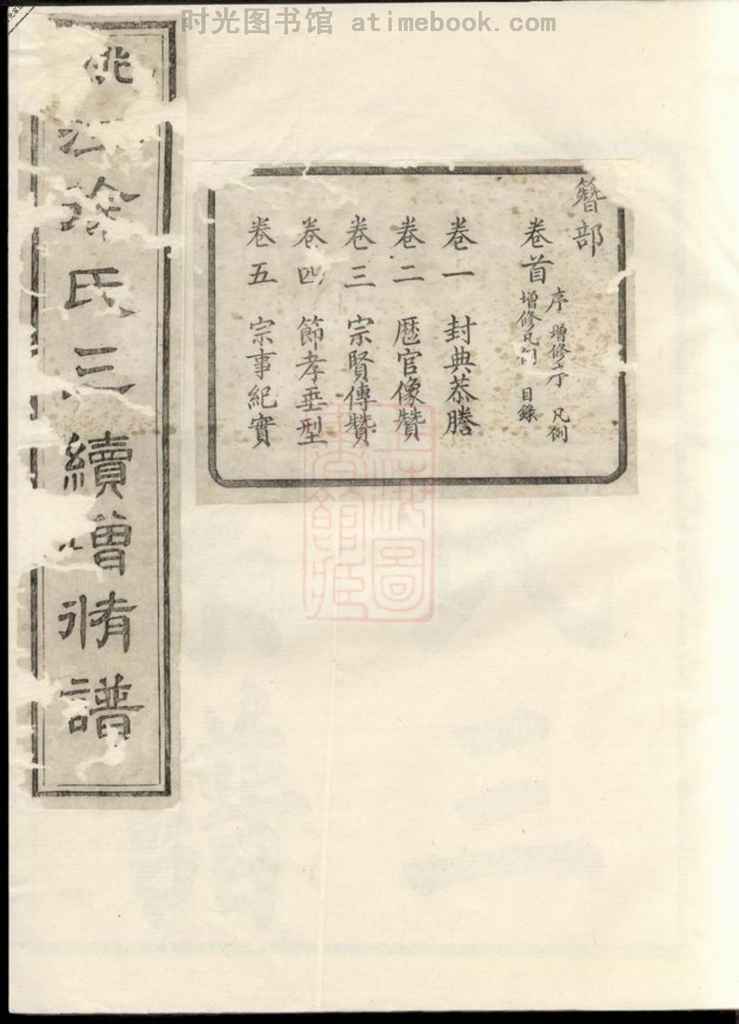 时光图书馆 atimebook.com
氏三續增脩譜
簪部
卷首
序 增修序 凡例
增修凡例 目錄
卷一 封典恭謄
卷二 歷官像贊
卷三 宗賢傳贊
卷四 節孝垂型
卷五 宗事紀實
上海圖書館藏